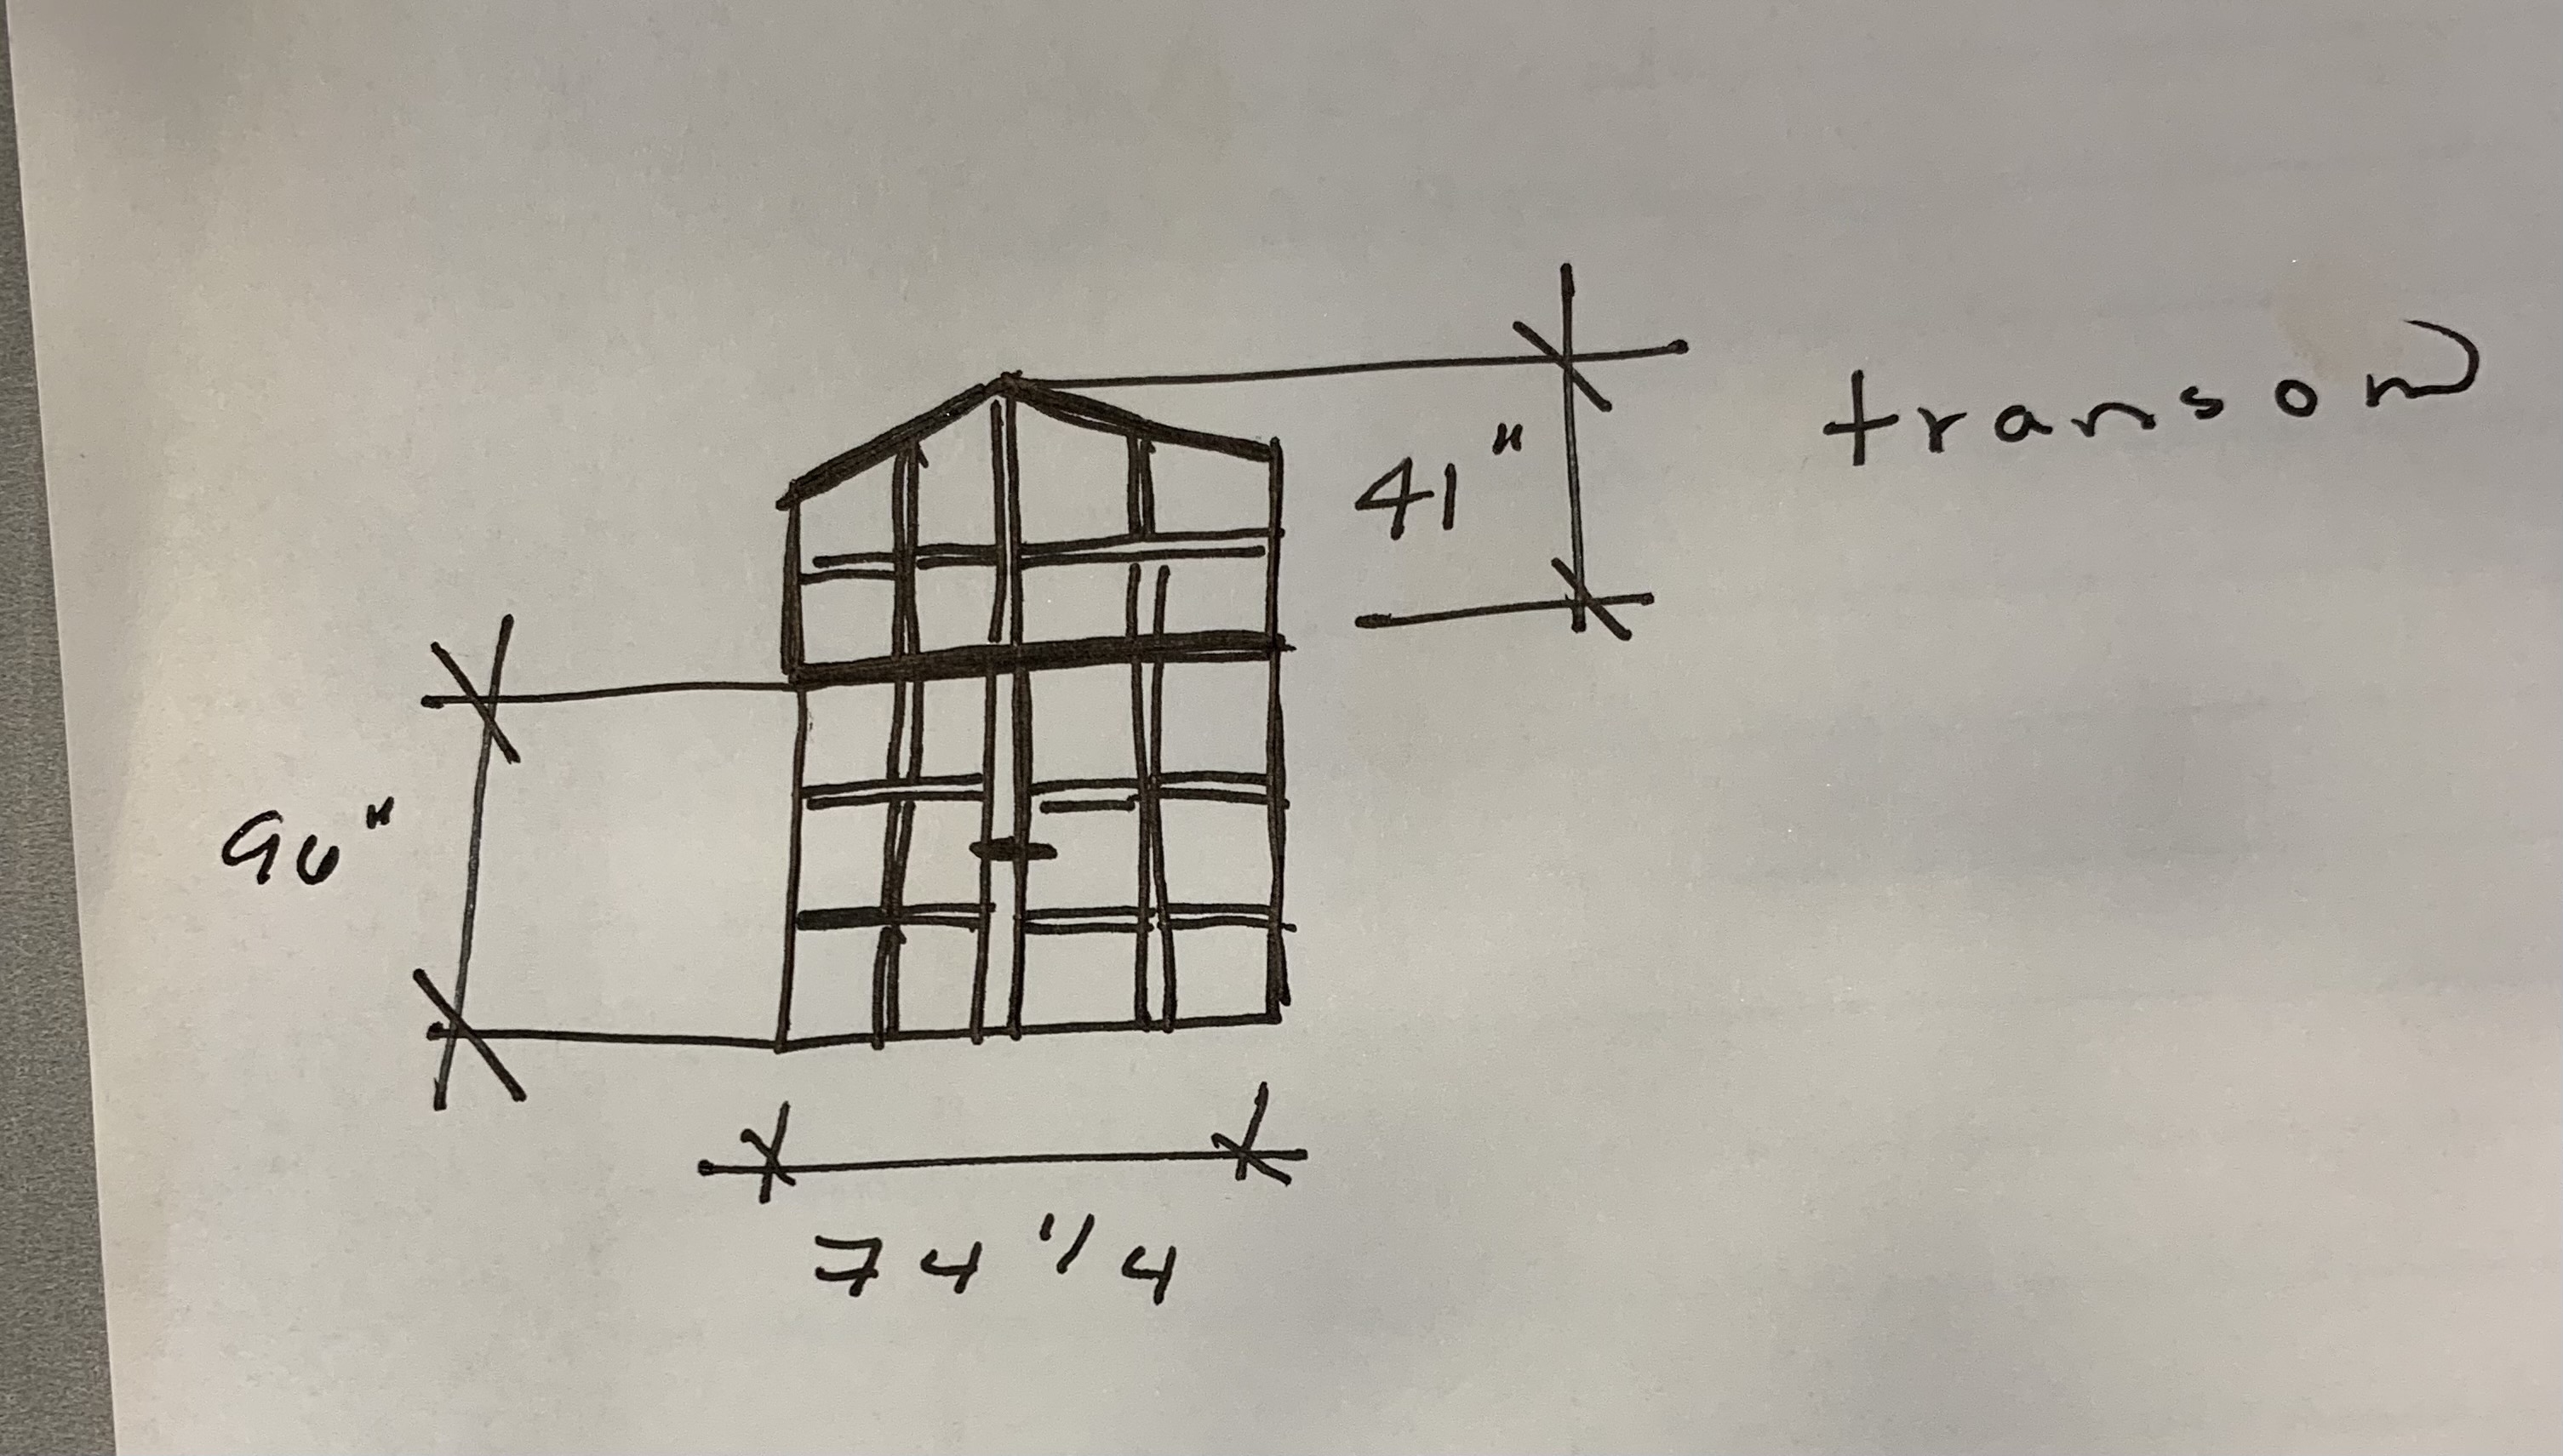 transom
41"
96"
74 1/4